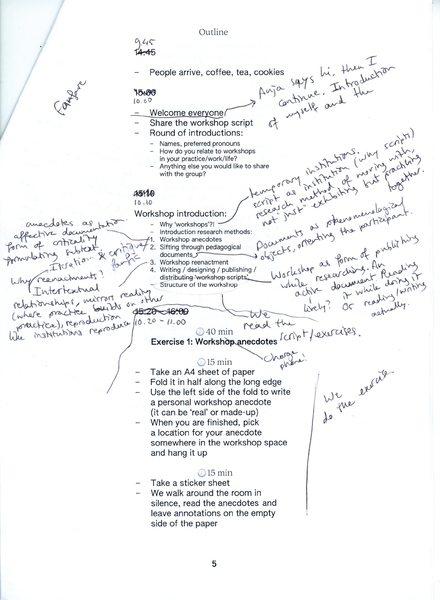 Outline
9.45
14:45
- People arrive, coffee, tea, cookies
Fanfare
15:00
10.00
Anja says hi, then I
continue. Introduction
of myself and the
- Welcome everyone
- Share the workshop script
- Round of introductions:
- Names, preferred pronouns
- How do you relate to workshops
in your practice/work/life?
- Anything else you would like to share
with the group?
15:10
10.10
temporary institutions.
script as institution (why script)
research method of moving with,
not just exhibiting but practicing
together.
Workshop introduction:
- Why 'workshops'?!
- Introduction research methods:
1. Workshop anecdotes
2. Sifting through pedagogical
documents
3. Workshop reenactment
4. Writing / designing / publishing /
distributing 'workshop scripts'
- Structure of the workshop
anecdotes as
affective documentation
form of criticality
formulating subtext.
Iteration & critique
Why reenactments?
Intertextual
relationships, mirror reality
(where practice builds on other
practice), reproduction
like institutions reproduce
Documents as phenomenological
objects, orienting the participant.
Workshop as form of publishing
while researching. An
active document. Reading
it while doing it
lively? Or reading/writing
actually.
15:20 – 16:00
10.20 - 11.00
We
read the
script/exercises.
40 min
Exercise 1: Workshop anecdotes
charge
phone!
15 min
- Take an A4 sheet of paper
- Fold it in half along the long edge
- Use the left side of the fold to write
a personal workshop anecdote
(it can be 'real' or made-up)
- When you are finished, pick
a location for your anecdote
somewhere in the workshop space
and hang it up
We
do the exercise
15 min
- Take a sticker sheet
- We walk around the room in
silence, read the anecdotes and
leave annotations on the empty
side of the paper
5